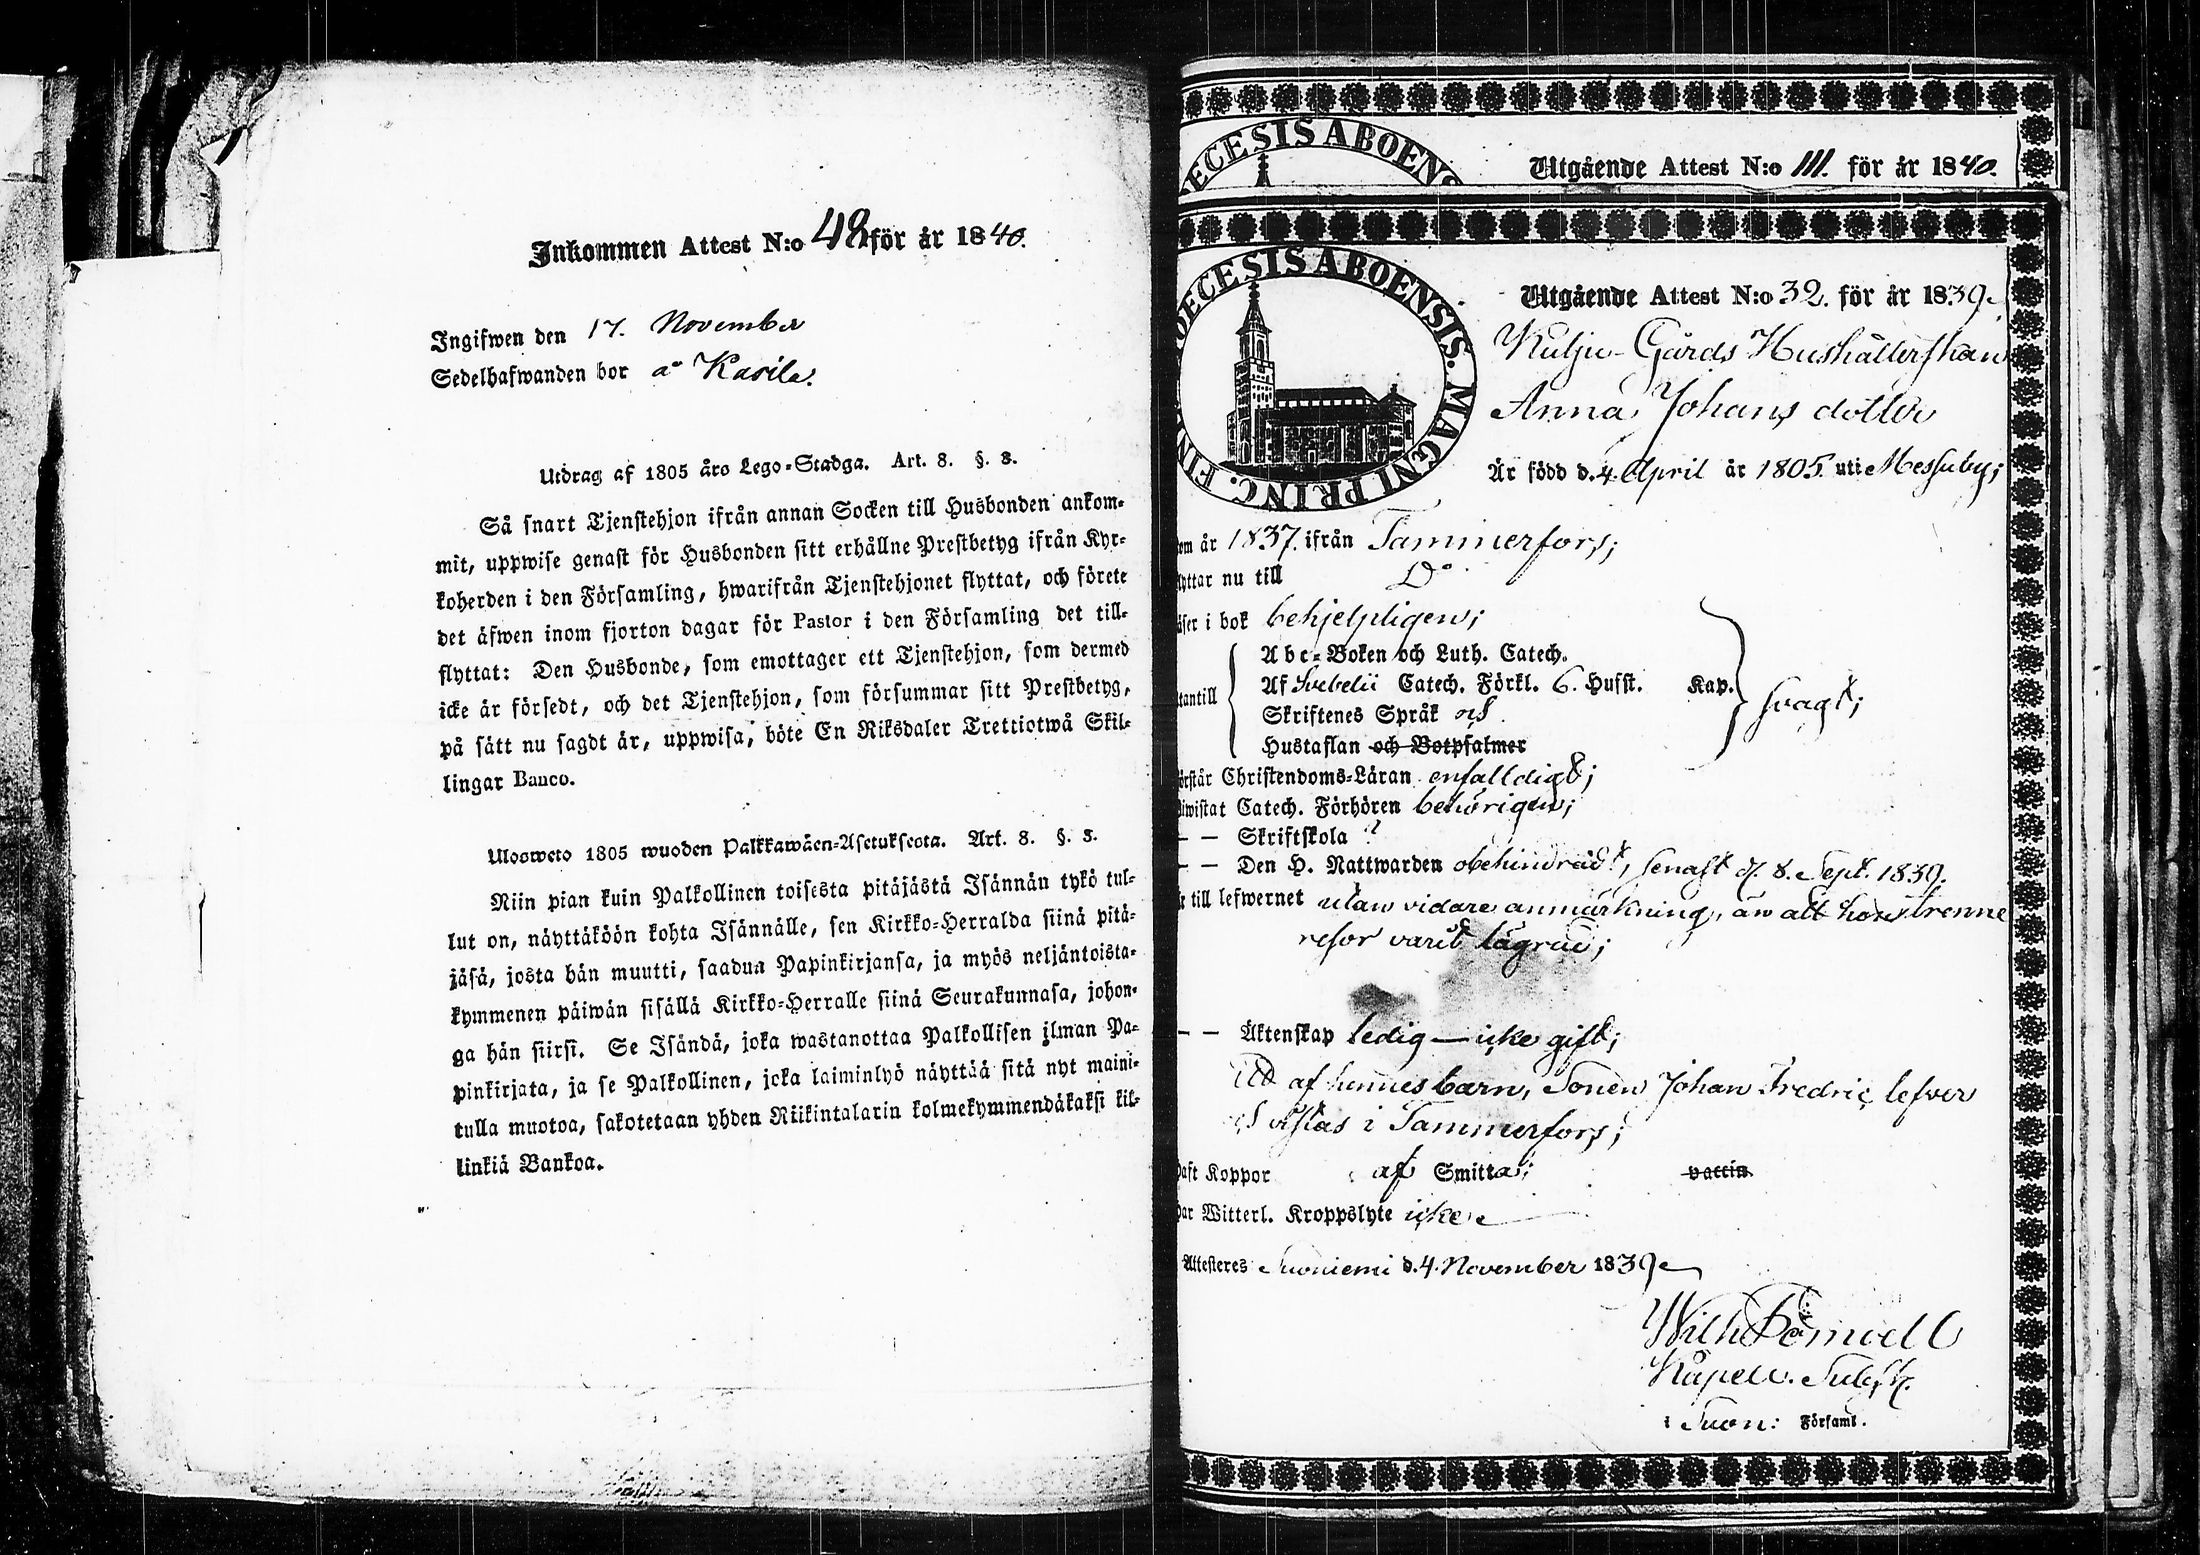 Inkommen Attest N:o 48 för år 1840.
Ingifwen den 17. November
Sedelhafwanden bor å Kasila.
Utdrag af 1805 års Lego-Stadga. Art. 8. §. 3.
Så snart Tjenstehjon ifrån annan Socken till Husbonden ankom-
mit, uppwise genast för Husbonden sitt erhållne Prestbetyg ifrån Kyr-
koherden i den Församling, hwarifrån Tjenstehjonet flyttat, och förete
det äfwen inom fjorton dagar för Pastor i den Församling det till-
flyttat: Den Husbonde, som emottager ett Tjenstehjon, som dermed
icke är försedt, och det Tjenstehjon, som försummar sitt Prestbetyg,
på sätt nu sagdt är, uppwisa, böte En Riksdaler Trettiotwå Skil-
lingar Banco.
Ulosweto 1805 wuoden Palkkawäen-Asetuksesta. Art. 8. §. 3.
Niin pian kuin Palkollinen toisesta pitäjästä Isännän tykö tul-
lut on, näyttäköön kohta Isännälle, sen Kirkko-Herralda siinä pitä-
jäsä, josta hän muutti, saadun Papinkirjansa, ja myös neljäntoista-
kymmenen päiwän sisällä Kirkko-Herralle siinä Seurakunnasa, johon-
ga hän siirsi. Se Isändä, joka wastanottaa Palkollisen ilman Pa-
pinkirjata, ja se Palkollinen, joka laiminlyö näyttää sitä nyt maini-
tulla muotoa, sakotetaan yhden Riikintalarin kolmekymmendäkaksi kil-
linkiä Bankoa.
OECESIS ABOENS
Utgående Attest N:o 111. för år 1840.
OECESIS ABOENSIS. MAGNI PRINC. FIN
Utgående Attest N:o 32. för år 1839
Kulju-Gårds Hushållerskan
Anna Johans dotter
Är född d. 4. April år 1805. uti Messuby;
om år 1837. ifrån Tammerfors;
lyttar nu till Do
äser i bok behjelpligen;
Abc-Boken och Luth. Catech.
tantill Af Svebelii Catech. Förkl. 6. Hufst. Kap. svagt;
Skriftenes Språk och
Hustaflan och Botpsalmer
örstår Christendoms-Läran enfalldigt;
iwistat Catech. Förhören behörigen;
— — Skriftskola ?
— — Den H. Nattwarden obehindradt, senast d. 8. Sept. 1839.
till lefwernet utan vidare anmärkning, än att hon trenne
resor varit lägrad;
— — Äktenskap ledig — icke gift;
af hennes barn, Sonen Johan Fredric lefver
och vistas i Tammerfors;
aft Koppor af Smitta; vaccin
ar Witterl. Kroppslyte icke
Attesteres Suoniemi d. 4. November 1839
Wilh
Kapell. Subst.
i Suon: Församl.